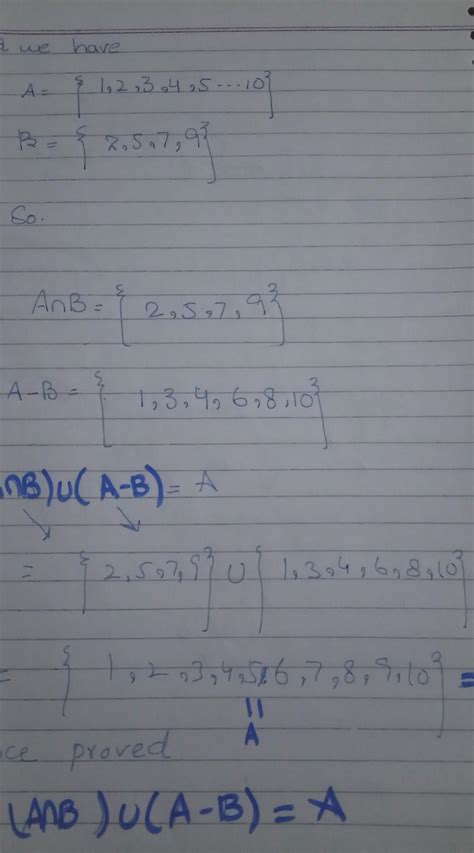 we have
A = { 1,2,3,4,5...10}
B = { 2,5,7,9}
So.
A∩B = { 2,5,7,9}
A-B = { 1,3,4,6,8,10}
∩B)∪( A-B) = A
= { 2,5,7,9} ∪ { 1,3,4,6,8,10}
= { 1,2,3,4,5,6,7,8,9,10} =
=
A
ce proved
(A∩B )∪(A-B) = A